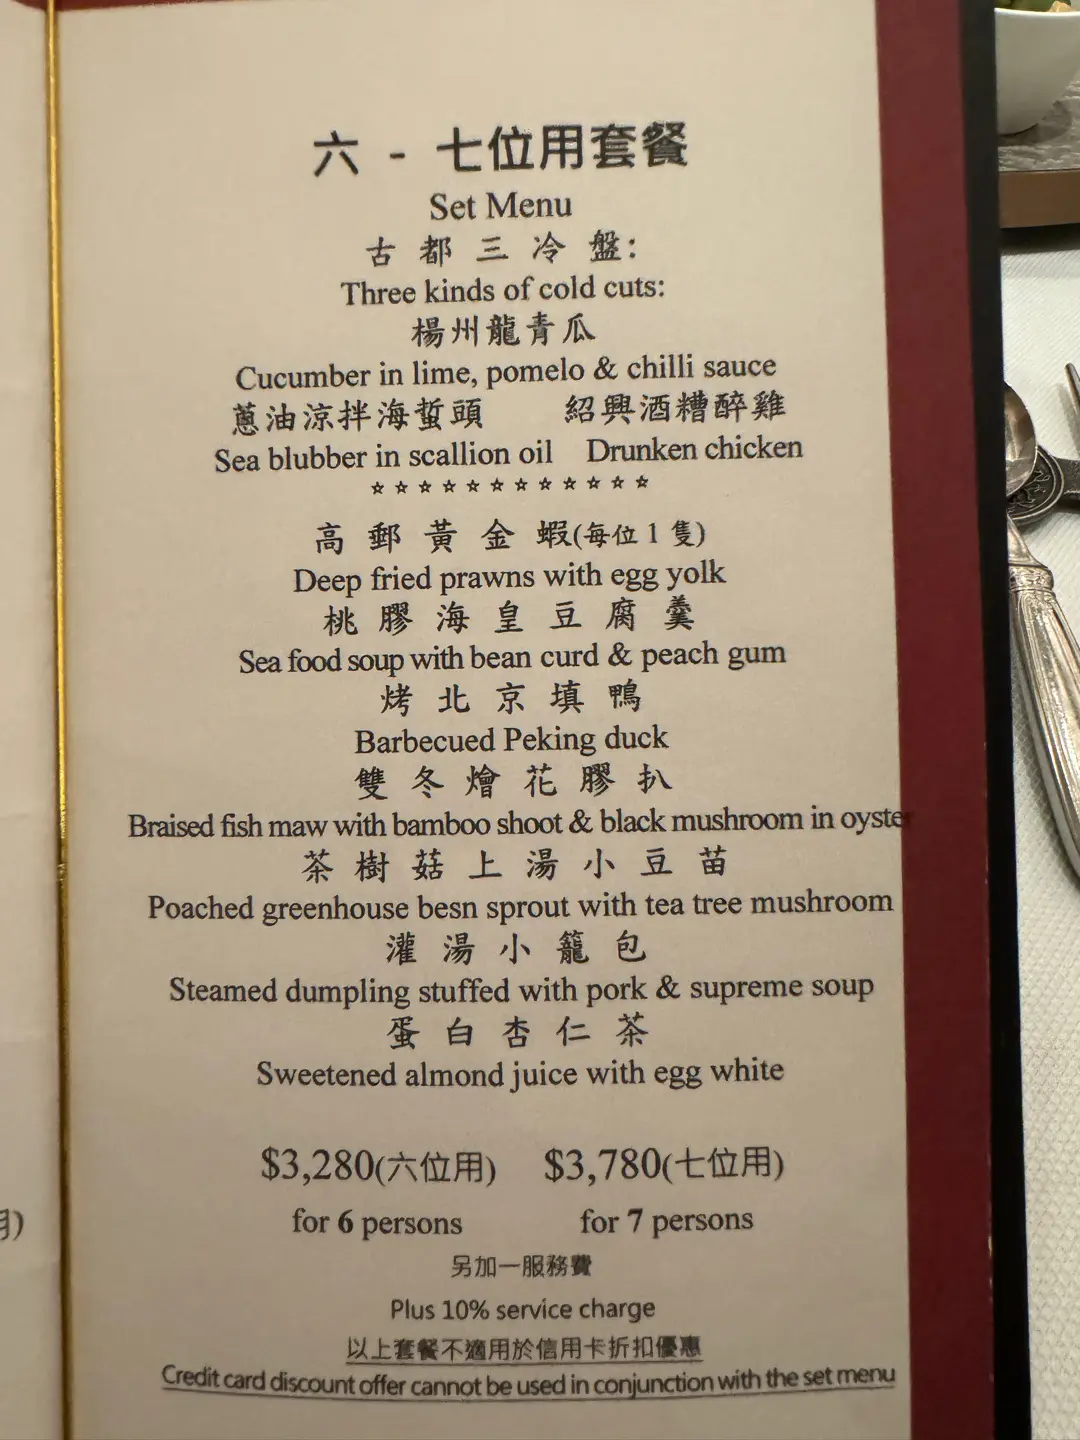 六 - 七位用套餐
Set Menu
古都三冷盤:
Three kinds of cold cuts:
楊州龍青瓜
Cucumber in lime, pomelo & chilli sauce
蔥油涼拌海蜇頭 紹興酒糟醉雞
Sea blubber in scallion oil Drunken chicken
☆☆☆☆☆☆☆☆☆☆☆☆
高郵黃金蝦(每位1隻)
Deep fried prawns with egg yolk
桃膠海皇豆腐羹
Sea food soup with bean curd & peach gum
烤北京填鴨
Barbecued Peking duck
雙冬燴花膠扒
Braised fish maw with bamboo shoot & black mushroom in oyster
茶樹菇上湯小豆苗
Poached greenhouse besn sprout with tea tree mushroom
灌湯小籠包
Steamed dumpling stuffed with pork & supreme soup
蛋白杏仁茶
Sweetened almond juice with egg white
$3,280(六位用) $3,780(七位用)
for 6 persons for 7 persons
另加一服務費
Plus 10% service charge
以上套餐不適用於信用卡折扣優惠
Credit card discount offer cannot be used in conjunction with the set menu